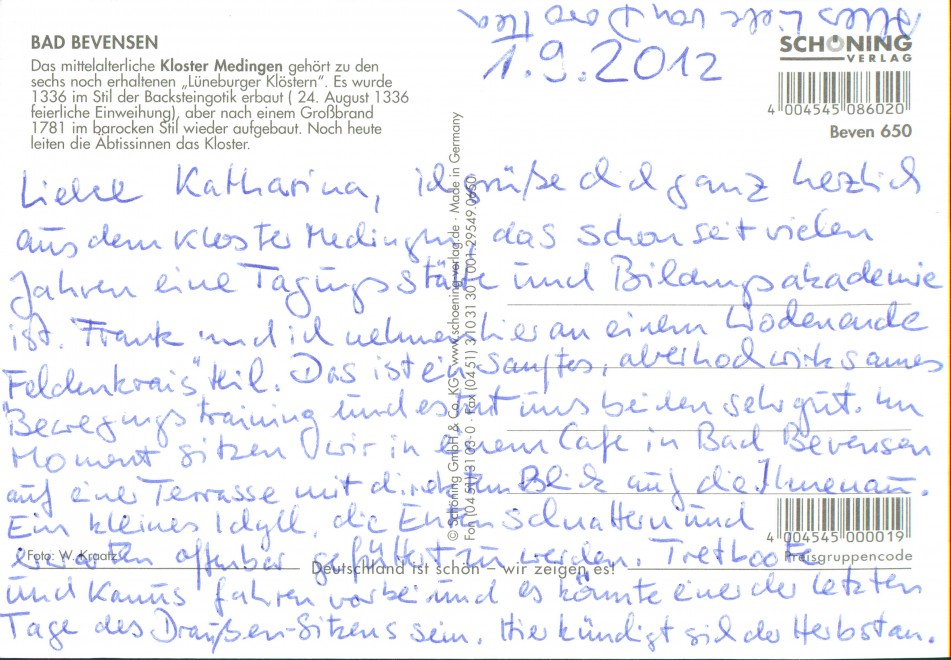 BAD BEVENSEN
Das mittelalterliche Kloster Medingen gehört zu den
sechs noch erhaltenen „Lüneburger Klöstern". Es wurde
1336 im Stil der Backsteingotik erbaut ( 24. August 1336
feierliche Einweihung), aber nach einem Großbrand
1781 im barocken Stil wieder aufgebaut. Noch heute
leiten die Äbtissinnen das Kloster.
Alles Liebe von Dora
1.9.2012
SCHÖNING
VERLAG
4 004545 086020
Beven 650
Liebe Katharina, ich grüße dich ganz herzlich
aus dem Kloster Medingen, das schon seit vielen
Jahren eine Tagungsstätte und Bildungsakademie
ist. Frank und ich nehmen hier an einem Wochenende
„Feldenkrais" teil. Das ist ein sanftes, aber hochwirksames
Bewegungstraining und es tut uns beiden sehr gut. Im
Moment sitzen wir in einem Cafe in Bad Bevensen
auf einer Terrasse mit direktem Blick auf die Ilmenau.
Ein kleines Idyll, die Enten schnattern und
erwarten offenbar gefüttert zu werden. Tretboote
und Kanus fahren vorbei und es könnte einer der letzten
Tage des Draußen-Sitzens sein. Hier kündigt sich der Herbst an.
© Schöning GmbH & Co. KG · www.schoening-verlag.de · Made in Germany
Fon (04 51) 3 10 3-0 · Fax (04 51) 3 10 31 30 001 29549 0650
4 004545 000019
Preisgruppencode
Foto: W. Kraatz
Deutschland ist schön – wir zeigen es!